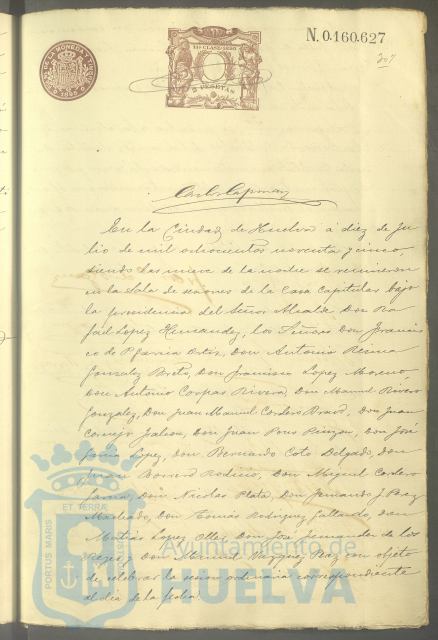 N. 0.160.627
307
11ª CLASE 1895
2 PESETAS
Carlos Capmany
En la Ciudad de Huelva á diez de Ju-
lio de mil ochocientos noventa y cinco,
siendo las nueve de la noche se reunieron
en la Sala de sesiones de la Casa Capitular bajo
la presidencia del Señor Alcalde Don Ra-
fael Lopez Hernandez, los Señores Don Francis-
co de P. Garcia Ortiz, Don Antonio Reina
Gonzalez, Don Francisco Lopez Moreno
Don Antonio Rivera, Don Manuel Rivero
Gonzalez, Don Juan Manuel Cordero Bravo, Don Juan
Cornejo, Don Juan Pons Pinzon, Don José
Garcia Lopez, Don Bernardo Coto Delgado, Don
Juan Borrero, Don Miguel Cordero
Don Nicolas Plata, Don Fernando J. Paez
Machado, Don Tomás Rodriguez Gallardo, Don
Matias Lopez, Don José Fernandez de los
Reyes, Don Manuel Vazquez con objeto
de celebrar la sesion ordinaria correspondiente
al dia de la fecha.
PORTUS MARIS
ET TERRÆ
CUSTODIA
Ayuntamiento de
HUELVA